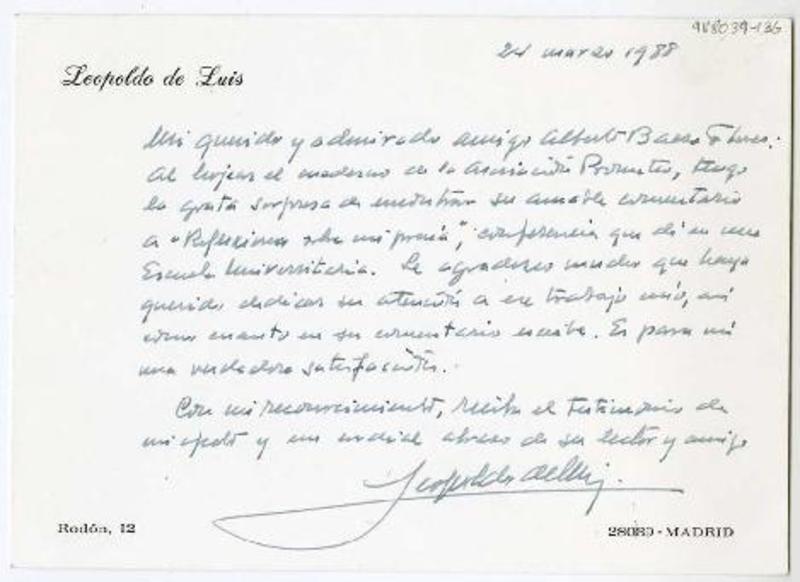 988039-136
24 marzo 1988
Leopoldo de Luis
Mi querido y admirado amigo Alberto Baeza Flores:
Al hojear el cuaderno de la Asociación Prometeo, tengo
la grata sorpresa de encontrar su amable comentario
a "Reflexiones sobre mi poesía", conferencia que di en una
Escuela Universitaria. Le agradezco mucho que haya
querido dedicar su atención a ese trabajo mío, así
como cuanto en su comentario escribe. Es para mí
una verdadera satisfacción.
Con mi reconocimiento, reciba el testimonio de
mi afecto y un cordial abrazo de su lector y amigo
Leopoldo de Luis.
Rodón, 12
28080 - MADRID